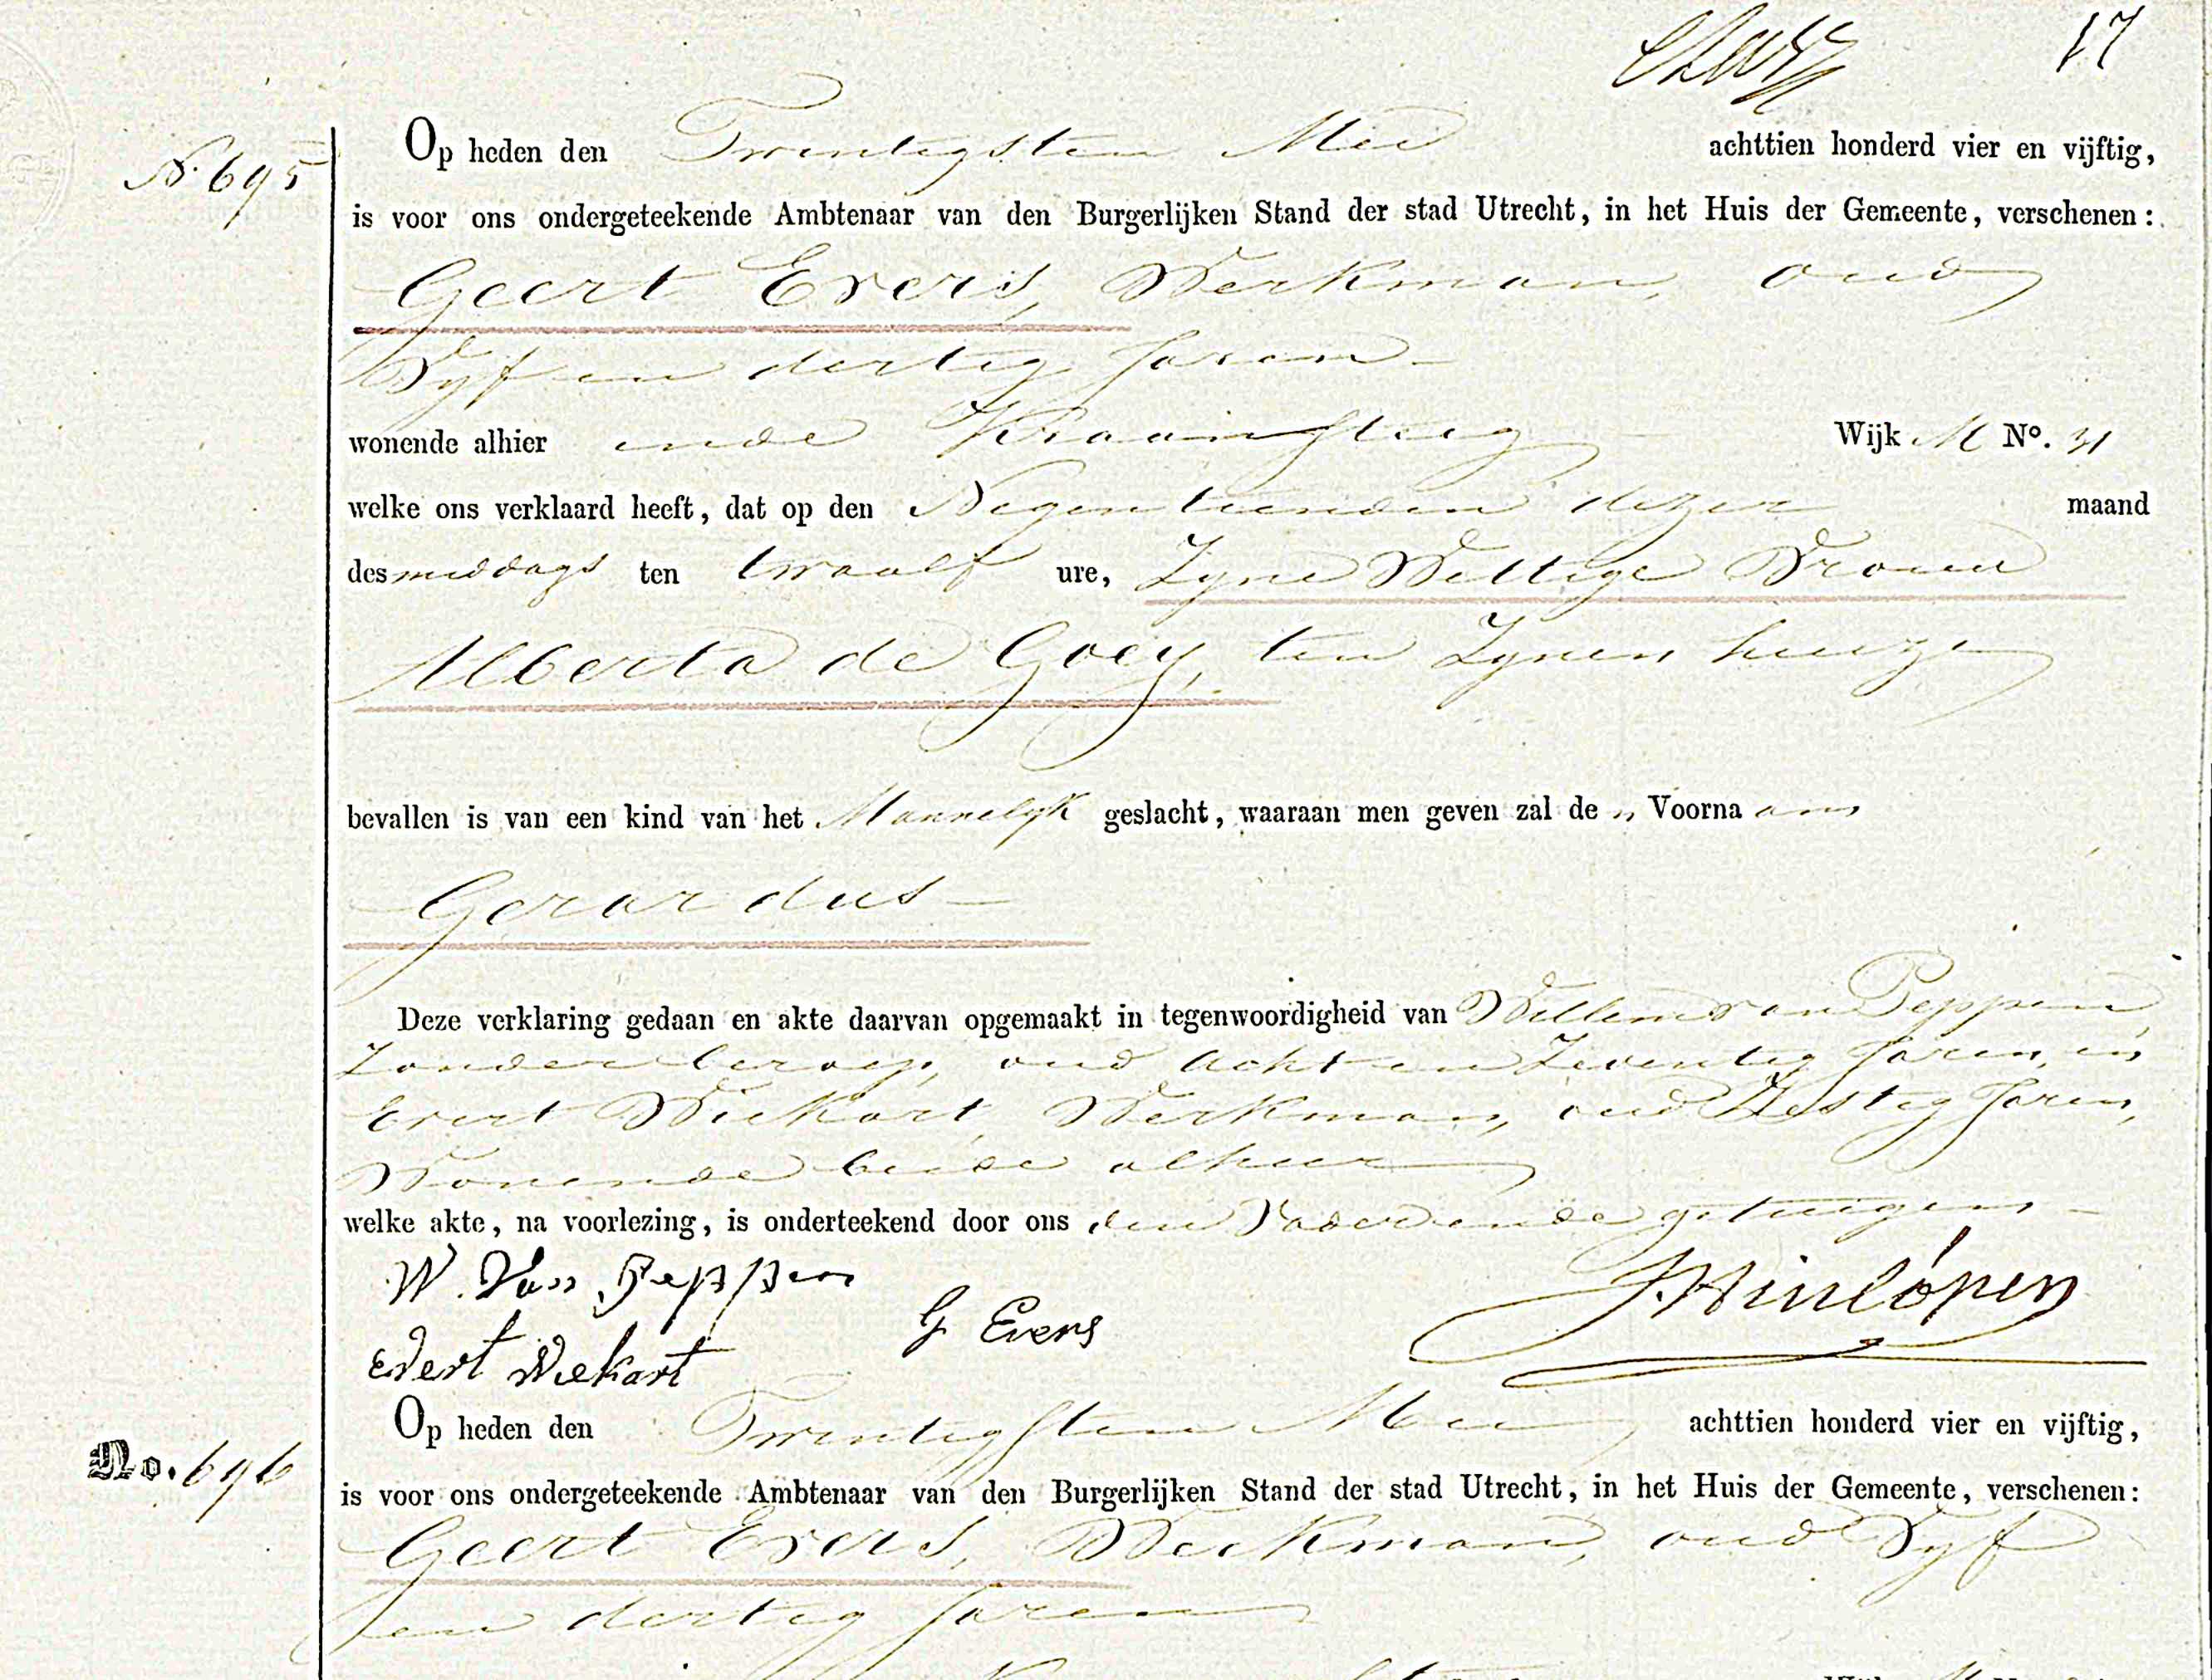 17
N. 695
Op heden den Twintigsten Mei achttien honderd vier en vijftig,
is voor ons ondergeteekende Ambtenaar van den Burgerlijken Stand der stad Utrecht, in het Huis der Gemeente, verschenen:
Geert Evers, Werkman, oud
Vyf en dertig Jaren
wonende alhier inde Kraansteeg Wijk M No. 31
welke ons verklaard heeft, dat op den Negentienden dezer maand
des middags ten twaalf ure, Zyne Wettige Vrouw
Alberta de Goey, ten Zynen huize
bevallen is van een kind van het Mannelyk geslacht, waaraan men geven zal de n Voorna am
Gerardus
Deze verklaring gedaan en akte daarvan opgemaakt in tegenwoordigheid van Willem van Peppen
Zonder beroep, oud Acht en Zeventig Jaren, en
Evert Wiekart, Werkman, oud Zestig Jaren,
Wonende beide alhier
welke akte, na voorlezing, is onderteekend door ons den Vader en de getuigen
W. Van Peppen
G Evers
J. Hinlópen
Evert Wiekart
No. 696
Op heden den Twintigsten Mei achttien honderd vier en vijftig,
is voor ons ondergeteekende Ambtenaar van den Burgerlijken Stand der stad Utrecht, in het Huis der Gemeente, verschenen:
Geert Evers, Werkman, oud Vyf
en dertig Jaren